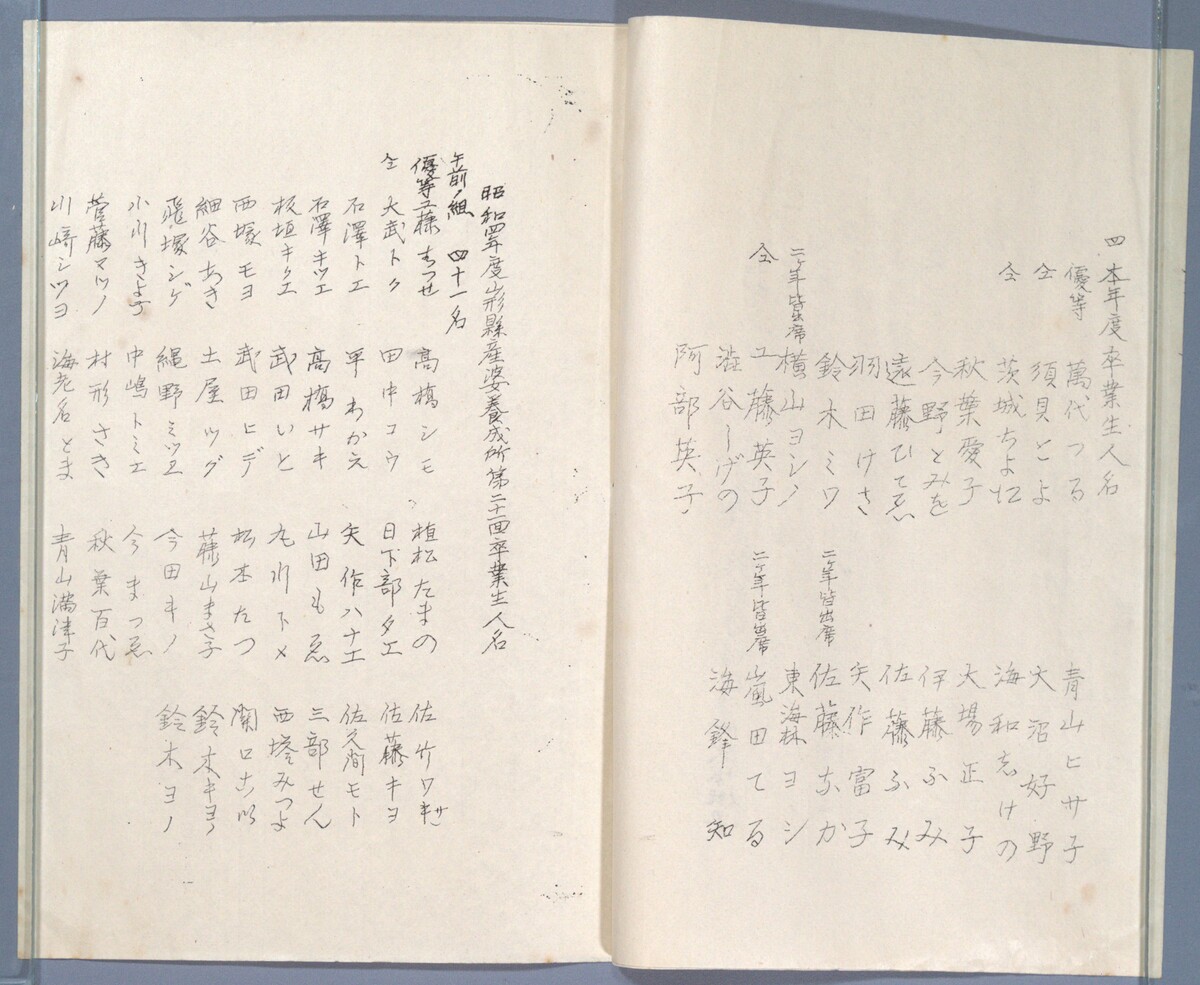 四 本年度卒業生人名
優等 萬代つる
仝 須貝とよ
仝 茨城ちよ
秋葉愛子
今野とみを
遠藤ひでゑ
羽田けさ
鈴木ミワ
二ヶ年皆出席 横山ヨシノ
仝 工藤英子
澁谷しげの
阿部英子
青山ヒサ子
大沼好野
海和志けの
大場正子
伊藤ふみ
佐藤ふみ
矢作富子
二ヶ年皆出席 佐藤なか
東海林ヨシ
二ヶ年皆出席 嵐田てる
海鋒知
昭和四年度山形縣産婆養成所第二十一回卒業生人名
午前ノ組 四十一名
優等 工藤はつせ 高橋シモ 植松たまの 佐竹ワキサ
仝 大武トク 田中コウ 日下部タエ 佐藤キヨ
石澤トエ 早あかえ 矢作ハナエ 佐久間モト
石澤キツエ 高橋サキ 山田もゑ 三部せん
板垣キクエ 武田いと 九川トメ 西塔みつよ
西塚モヨ 武田ヒデ 松本たつ 関口
細谷あき 土屋ツグ 藤山まさ子 鈴木キヨノ
飛塚シゲ 縄野ミツヱ 今田キノ 鈴木ヨノ
小川きよ 中嶋トミエ 今まつゑ
菅藤マツノ 村形さき 秋葉百代
川崎シツヨ 海老名とま 青山満津子